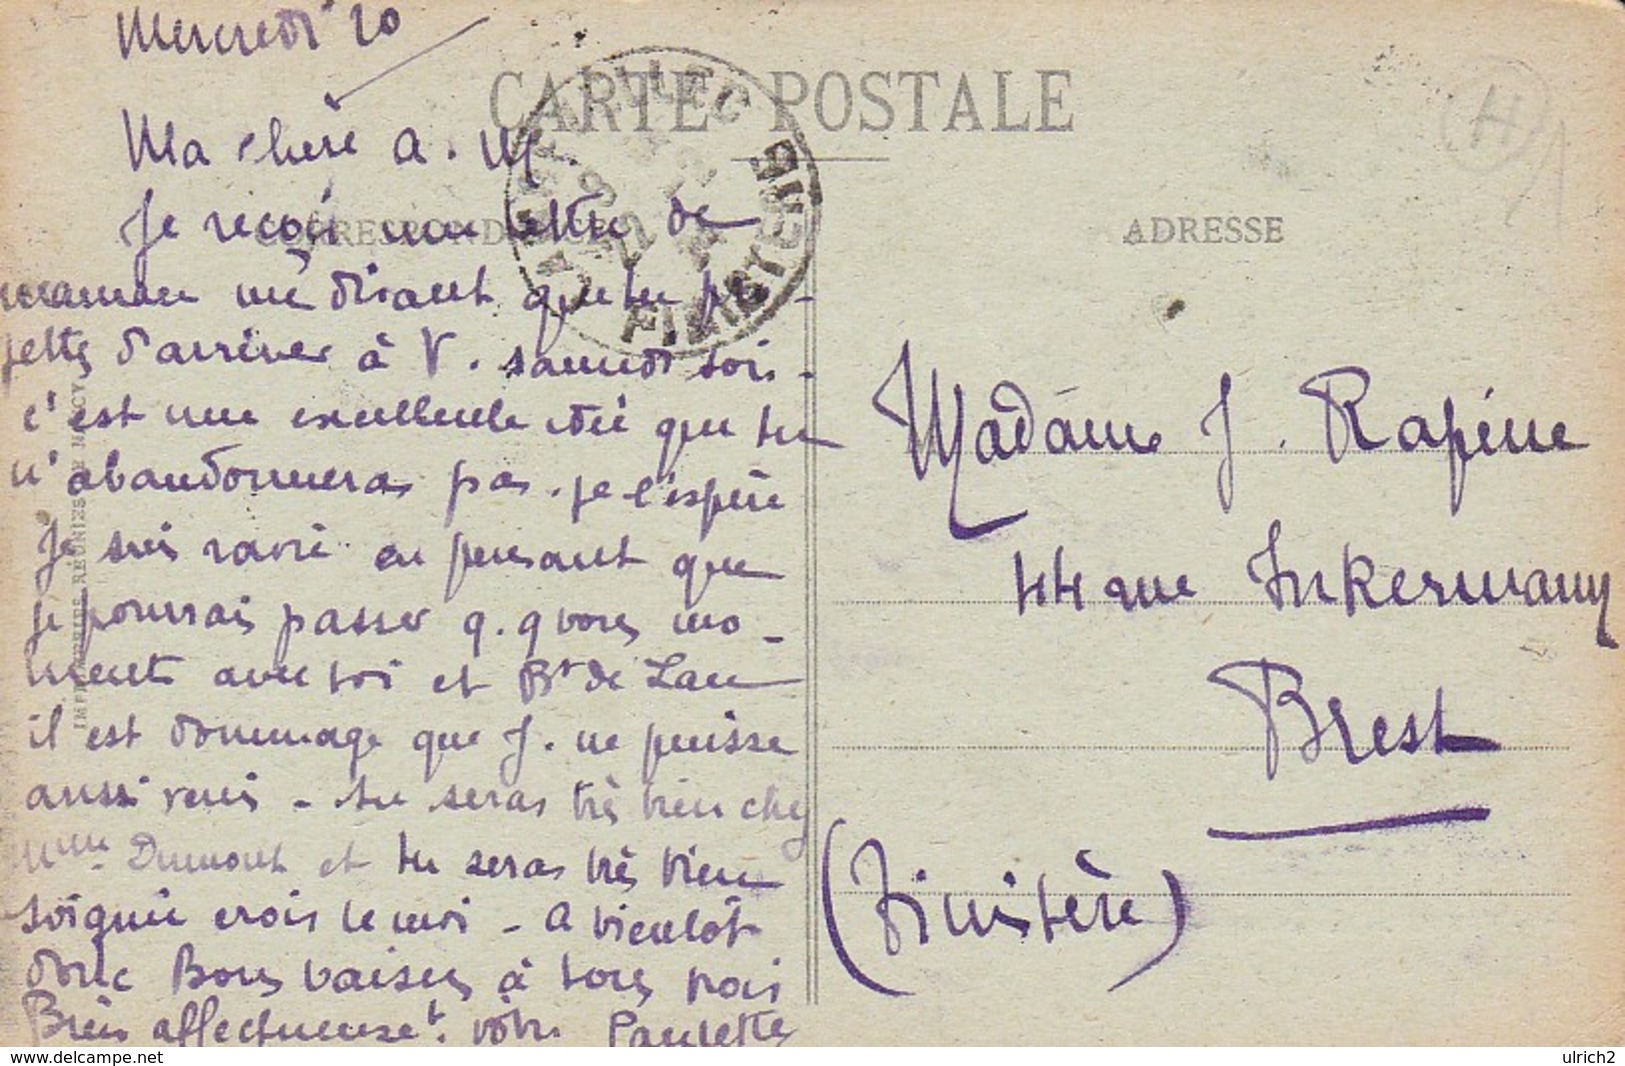 Mercredi 20
CARTE POSTALE
CORRESPONDANCE
ADRESSE
Ma chère A. M.
Je reçois une lettre de
maman me disant que tu pro-
jettes d'arriver à V. samedi soir.
c'est une excellente idée que tu
n'abandonneras pas. je l'espère
Je suis ravie en pensant que
je pourrais passer q.q bons mo-
ments avec toi et Bt de Lau
il est dommage que J. ne puisse
aussi venir - tu seras très bien chez
Mme Dumont et tu seras très bien
soignée crois le moi - A bientôt
donc Bons baisers à tous trois
Bien affectueuset. vôtre Paulette
Madame J. Rapine
44 rue Inkermann
Brest
(Finistère)
FINISTERE
IMPRIMERIES REUNIES DE NANCY
H
www.delcampe.net
ulrich2